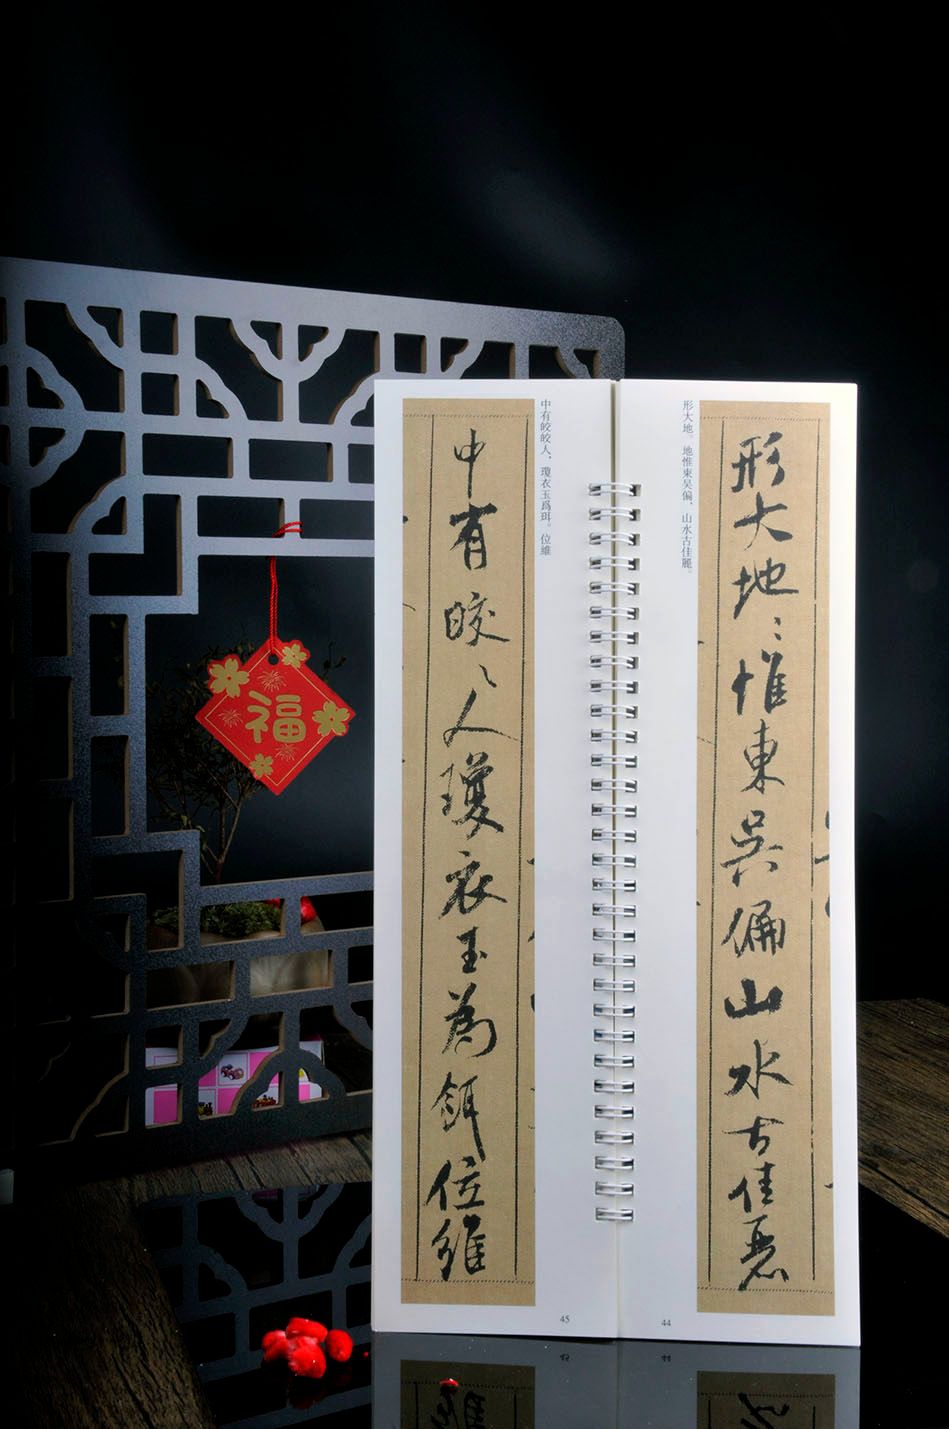 形大地〻惟東吳偏山水古佳麗
形大地。地惟東吴偏，山水古佳麗。
44
中有皎皎人，瓊衣玉爲珥。位維
中有皎〻人瓊衣玉為餌位維
45
福